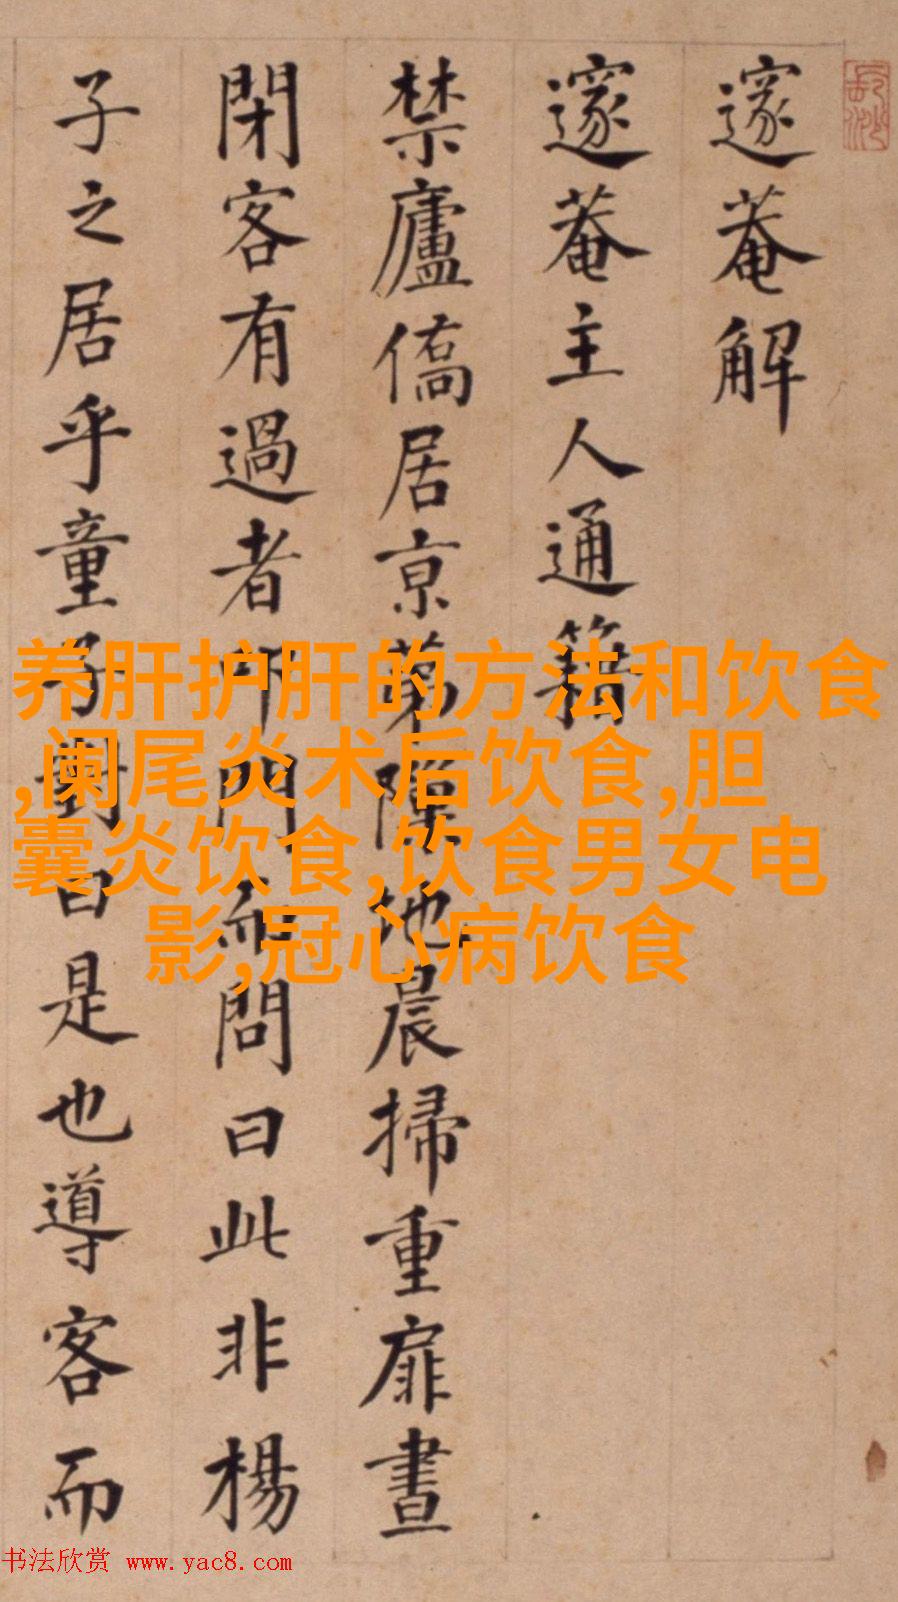 邃菴解
邃菴主人通籍
禁廬僑居京第隙地晨掃重扉晝
閉客有過者叩門而問曰此非楊
子之居乎童子對曰是也導客而
养肝护肝的方法和饮食
,阑尾炎术后饮食,胆
囊炎饮食,饮食男女电
影,冠心病饮食
书法欣赏 www.yac8.com